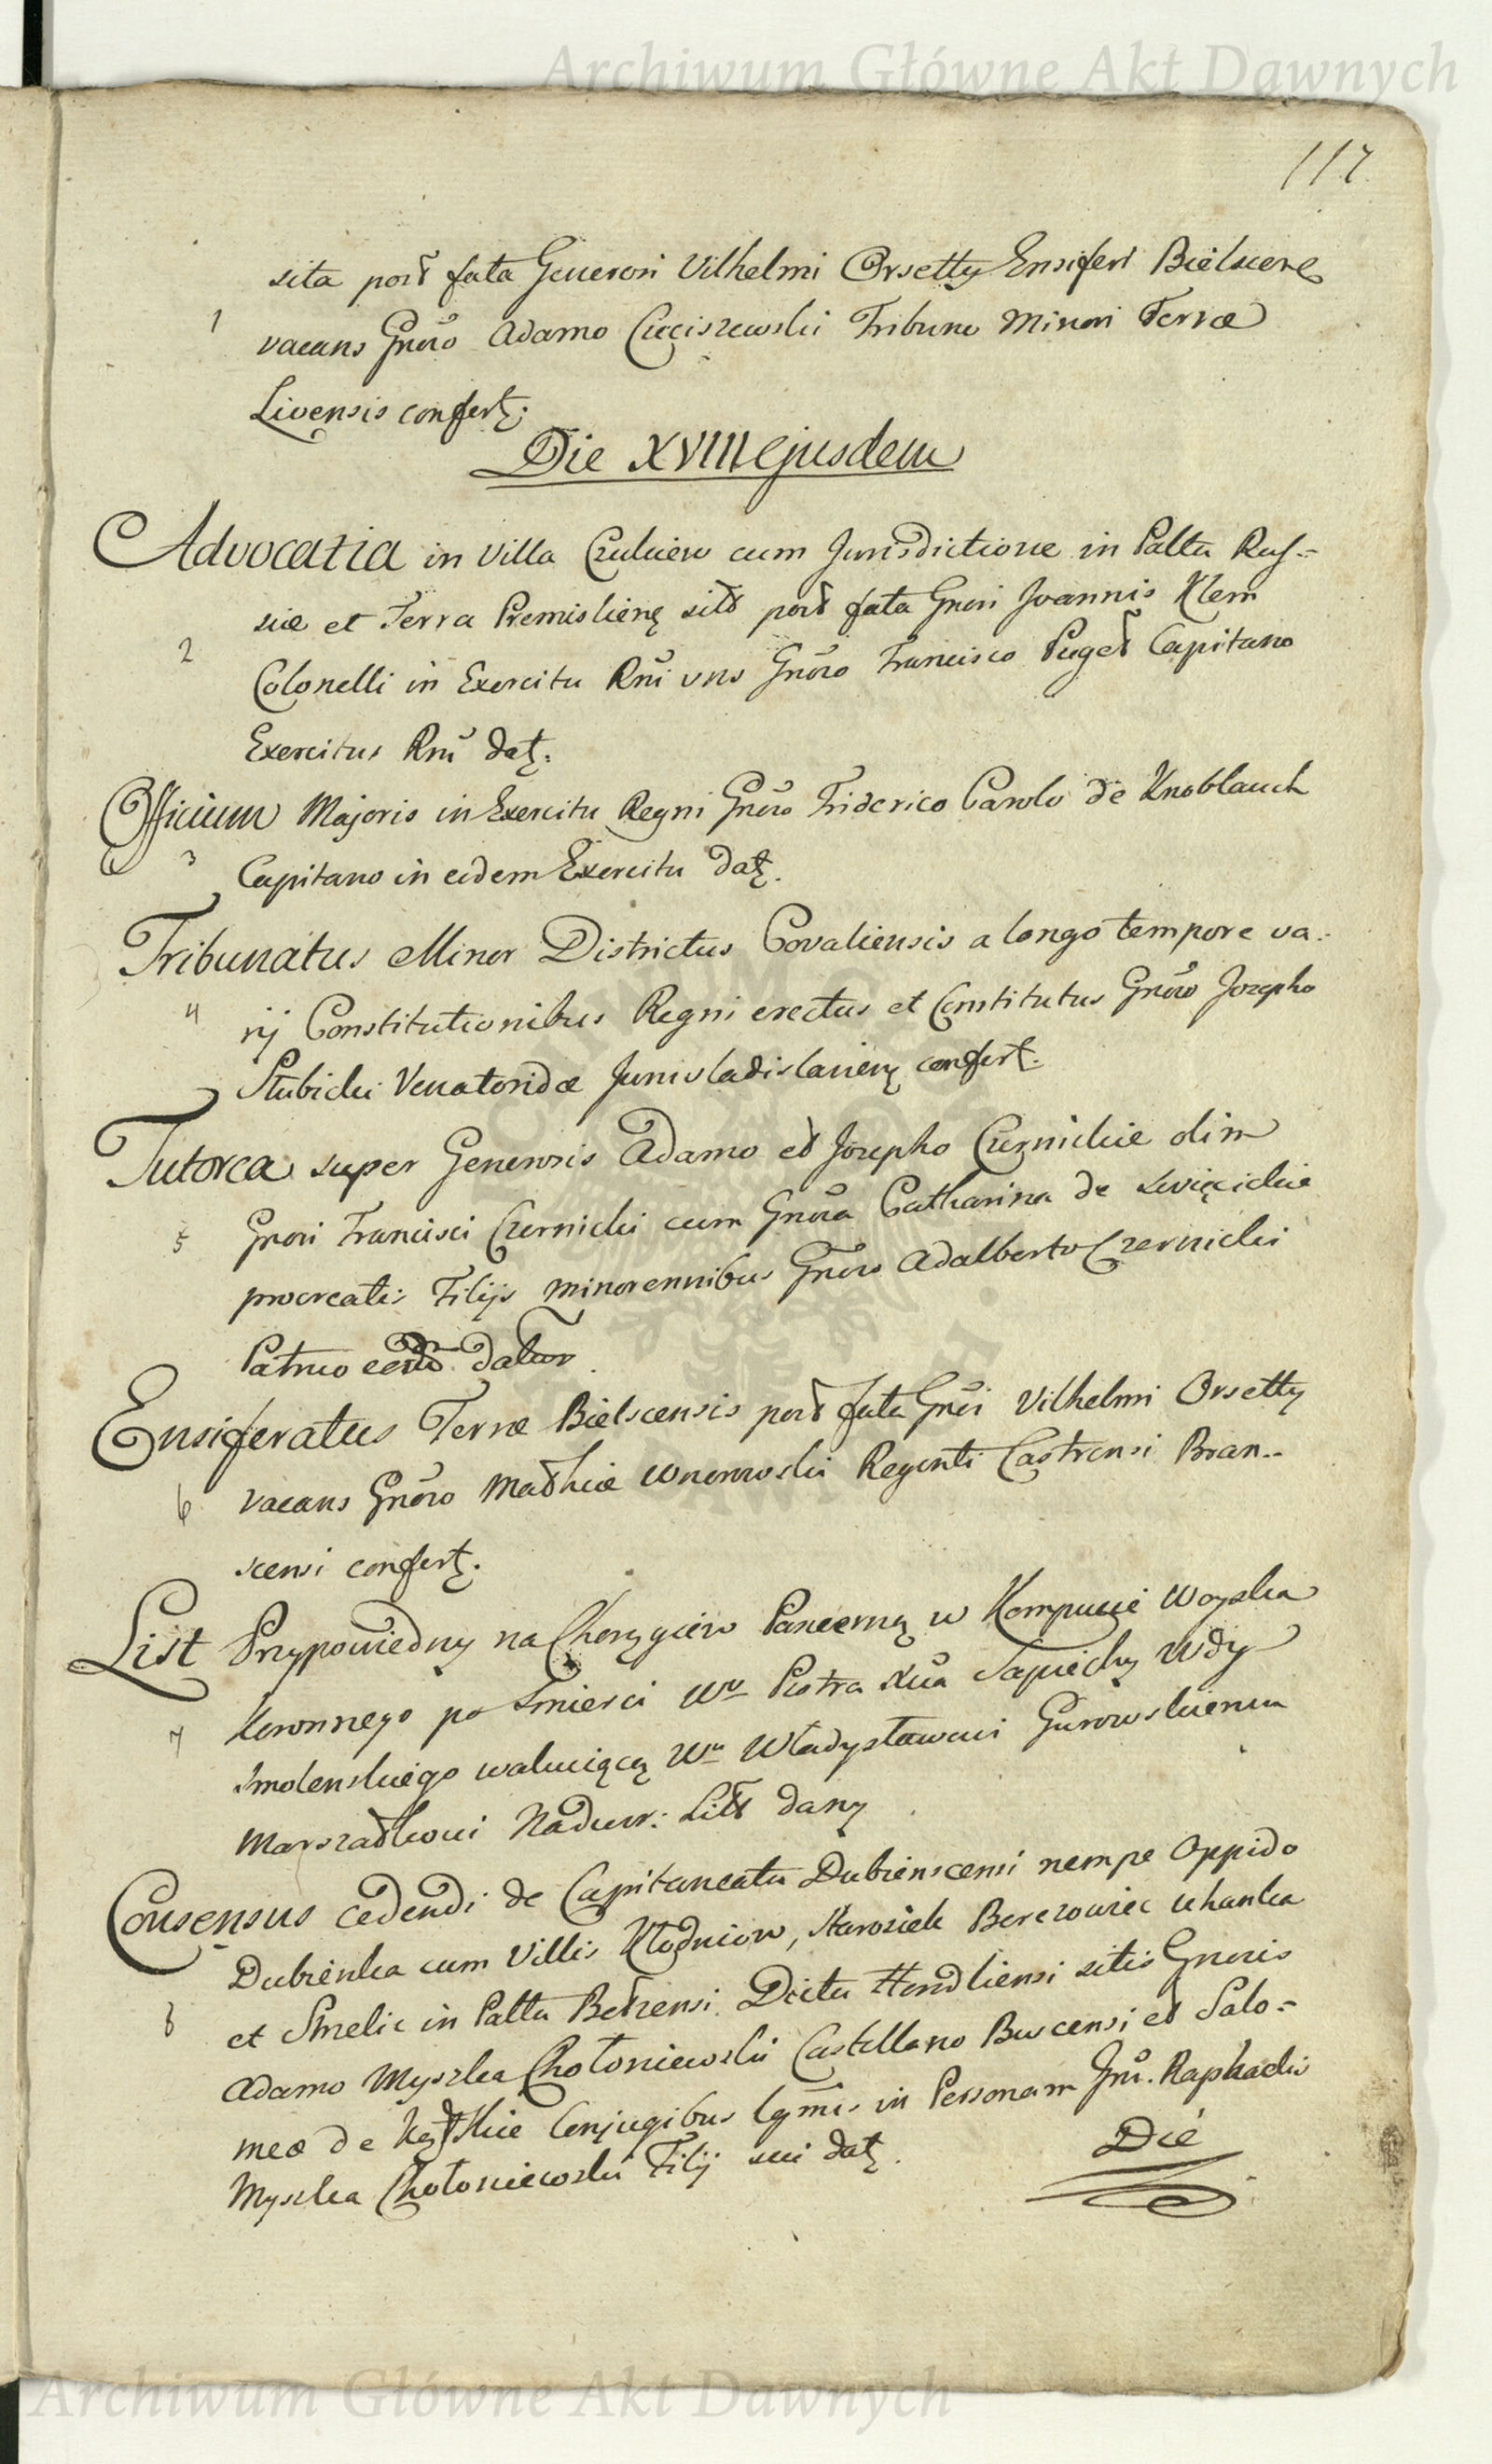 Archiwum Główne Akt Dawnych
117
sita post fata Generosi Vilhelmi Orsetty Ensiferi Bielscens
1 vacans Gnoso Adamo Cieciszewski Tribuno Minori Terræ
Livensis confert:
Die XVIII ejusdem
Advocatia in Villa cum Jurisdictione in Pallu Rus=
siæ et Terra Premisliens sita post fata Gnosi Joannis Klem
2 Colonelli in Exercitu Rni vns Gnoso Francisco Puget Capitano
Exercitus Rni dat.
Officium Majoris in Exercitu Regni Gnoso Friderico Carolo de Knoblauch
3 Capitano in eidem Exercitu dat.
Tribunatus Minor Districtus Covaliensis a longo tempore va=
4 rij Constitutionibus Regni erectus et Constitutus Gnoso Josepho
Slubicki Venatoridæ Junivladislaviens confert.
Tutorea super Generosis Adamo et Josepho Czernickie olim
5 Gnosi Francisci Czernicki cum Gnosa Catharina de Swięcickie
procreatis Filijs minorennibus Gnoso Adalberto Czernicki
Patruo datur
Ensiferatus Terræ Bielscensis post fata Gnosi Vilhelmi Orsetty
6 vacans Gnoso Mathiæ Wnorowski Regenti Castrensi Bran=
scensi confert.
List Przypowiedny na Chorągiew Pancerną w Kompucie Woyska
7 Koronnego po smierci Wo Piotra Xcia Sapiehy Wdy
Smolenskiego wakuiącą Wu Władysławowi Gurowskiemu
Marszałkowi Nadwor: Litt dany
Consensus cedendi de Capitaneatu Dubienscensi nempe Oppido
Dubienka cum Villis Kłodniow, Starosiele Berezowiec Uhanka
8 et Strzelic in Pallu Belzensi Dictu Horodliensi sitis Gnosis
Adamo Myszka Chołoniewski Castellano Buscensi et Salo=
meæ de Kątskie Conjugibus lgmis in Personam Gnsi. Raphaelis
Myszka Chołoniewski Filij sui dat.
Die
Archiwum Główne Akt Dawnych